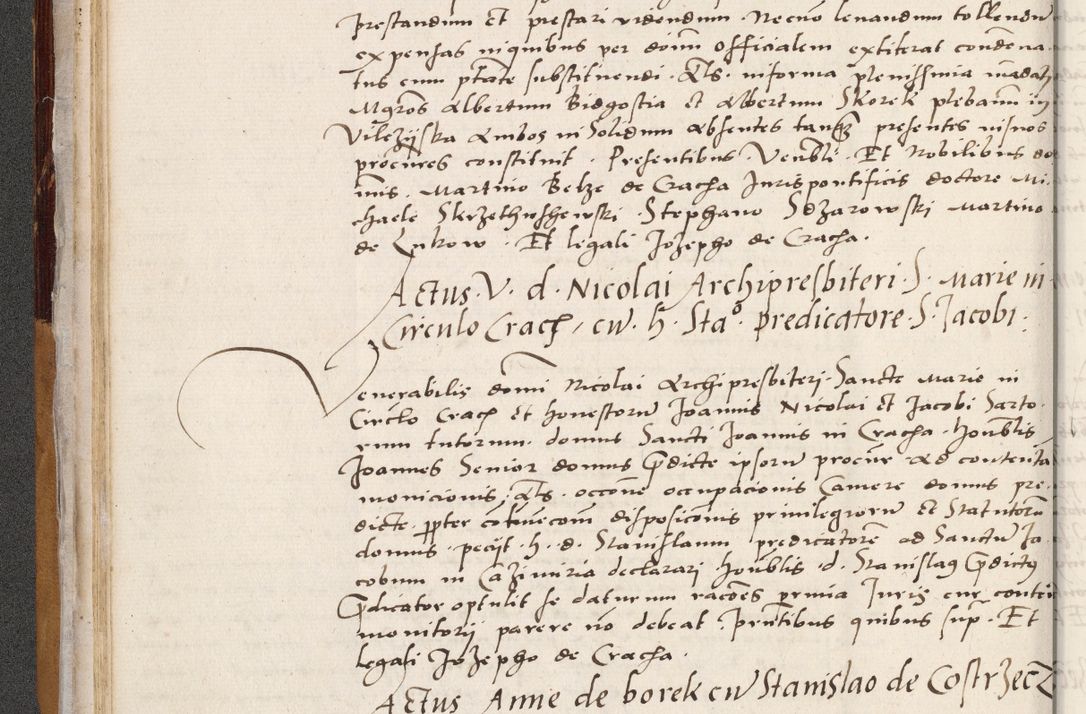 prestandum et prestari videndum. Necno levandum tollendu
expensas in quibus per dnm officialem extiterat condena
tus cum ptate substituendi. &ls. in forma plenissima madati
Mgros Albertum Bidgostia et Albertum Skorek plebanum in
Vilczyska ambos in solidum absentes tanq presentes in suos
procures constituit. Presentibus. Venbli. Et Nobilibus do
inis. Martino Belze de Cracha Juris pontificis doctore Mi
chaele Skrzethushewski. Stephano Sdzarowski Martino
de Lukow. Et legali Jozepho de Cracha.
Actus. V. d. Nicolai Archipresbiteri. S. Marie in
Circulo Crach, cu. h. Stao. predicatore. S. Jacobi.
Venerabilis domi Nicolai Archipresbiteri. Sancte Marie in
Circlo Crach et honestoru Joannis Nicolai et Jacobi Sarto.
rum tutorum. domus Sancti Joannis in Cracha. honblis
Joannes Senior domus pdicte ipsoru procur ad contenta
monicionis, &ls. occone occupacionis Camere domus pre
dicte. ppter disposicionis privilegioru et Statutoru
domus. pecijt. h. d. Stanislaum predicatore ad Sanctu Ja
cobum in Cazimiria declarari honblis. d. Stanislaus pdictus
pdicator optulit se daturum racoes primia Juris cur conten
monitorij parere no debeat. pntibus quibus sup. Et
legali Jozepho de Cracha.
Actus Anne de borek cu Stanislao de Costrzecz